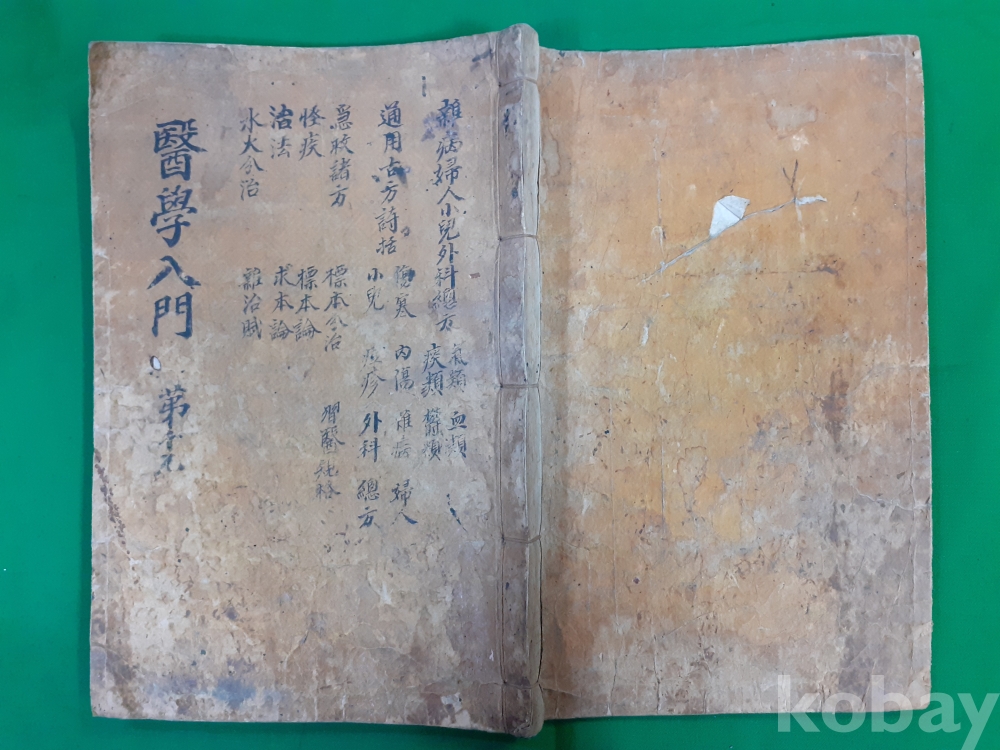 雜病婦人小兒外科總方 氣類 血類
痰類 鬱類
通用古方詩括 傷寒 內傷 雜病 婦人
小兒 痘疹 外科 總方
急救諸方 標本分治 習醫規格
怪疾 標本論
治法 求本論
水火分治 雜治賦
醫學入門 第十九
kobay